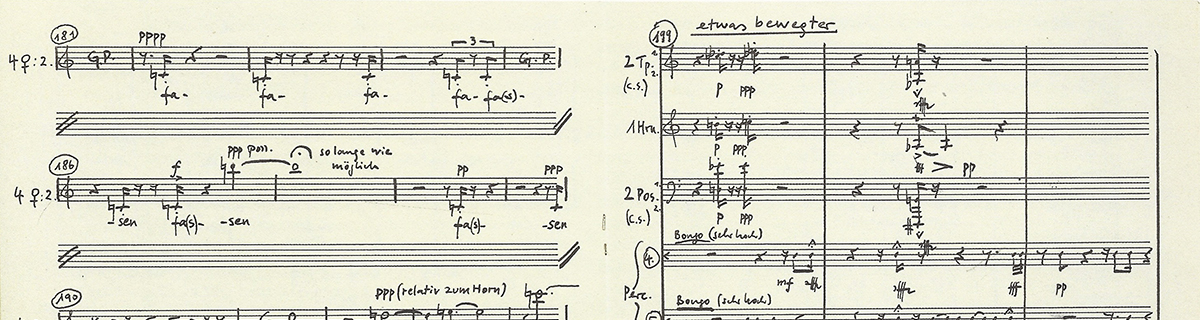 181
pppp
4♀:2.
G.P.
3
G.P.
fa- fa- fa- fa- fa(s)-
186
f
ppp poss.
so lange wie
möglich
pp
ppp
4♀:2.
-sen fa(s)- -sen fa(s)- -sen
190
ppp (relativ zum Horn)
199
etwas bewegter
2 Tp.
(c.s.)
p ppp
sffz
1 Hrn.
p ppp
sff
pp
2 Pos.
(c.s.)
p ppp
sffz
Bongo (sehr hoch)
4.
mf sffz sffz sff pp
Perc.
Bongo (sehr hoch)
5.